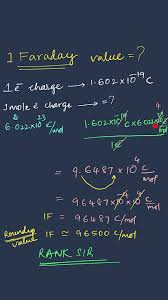 1 Faraday value = ?
1 ē charge → 1.602×10⁻¹⁹ C
1 mole ē charge → = ?
6.022×10²³ /mol
1.602×10⁻¹⁹ C × 6.022×10²³ /mol
1
= 9.6487 × 10⁴ C/mol
= 96487 × 10⁻⁴ × 10⁴ C/mol
1F = 96487 C/mol
Roundup value 1F ≃ 96500 C/mol
RANK SIR